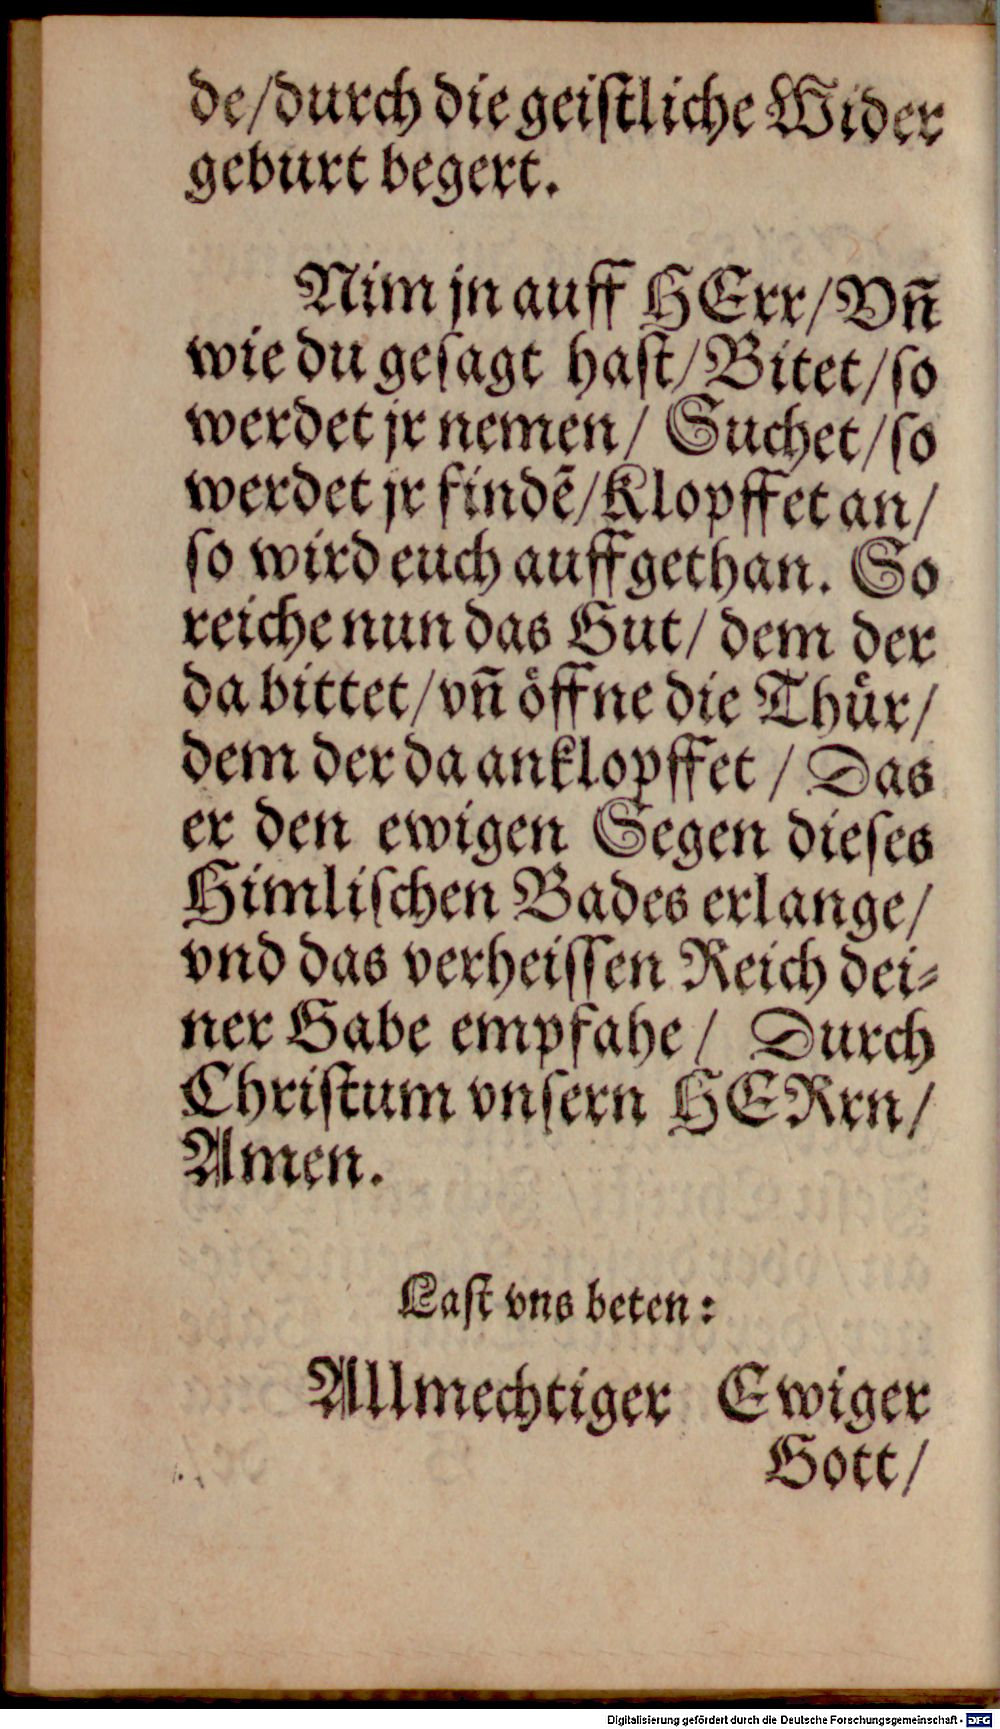 de/durch die geiſtliche Wider
geburt begert.
Nim jn auff HErr/Vñ
wie du geſagt haſt/Bitet/ſo
werdet jr nemen/ Suchet/ſo
werdet jr findẽ/Klopffet an/
ſo wird euch auffgethan. So
reiche nun das Gut/ dem der
da bittet/vñ oͤffne die Thuͤr/
dem der da anklopffet / Das
er den ewigen Segen dieſes
Himliſchen Bades erlange/
vnd das verheiſſen Reich dei⸗
ner Gabe empfahe/ Durch
Chriſtum vnſern HERrn/
Amen.
Laſt vns beten:
Allmechtiger Ewiger
Gott/
Digitalisierung gefördert durch die Deutsche Forschungsgemeinschaft - DFG